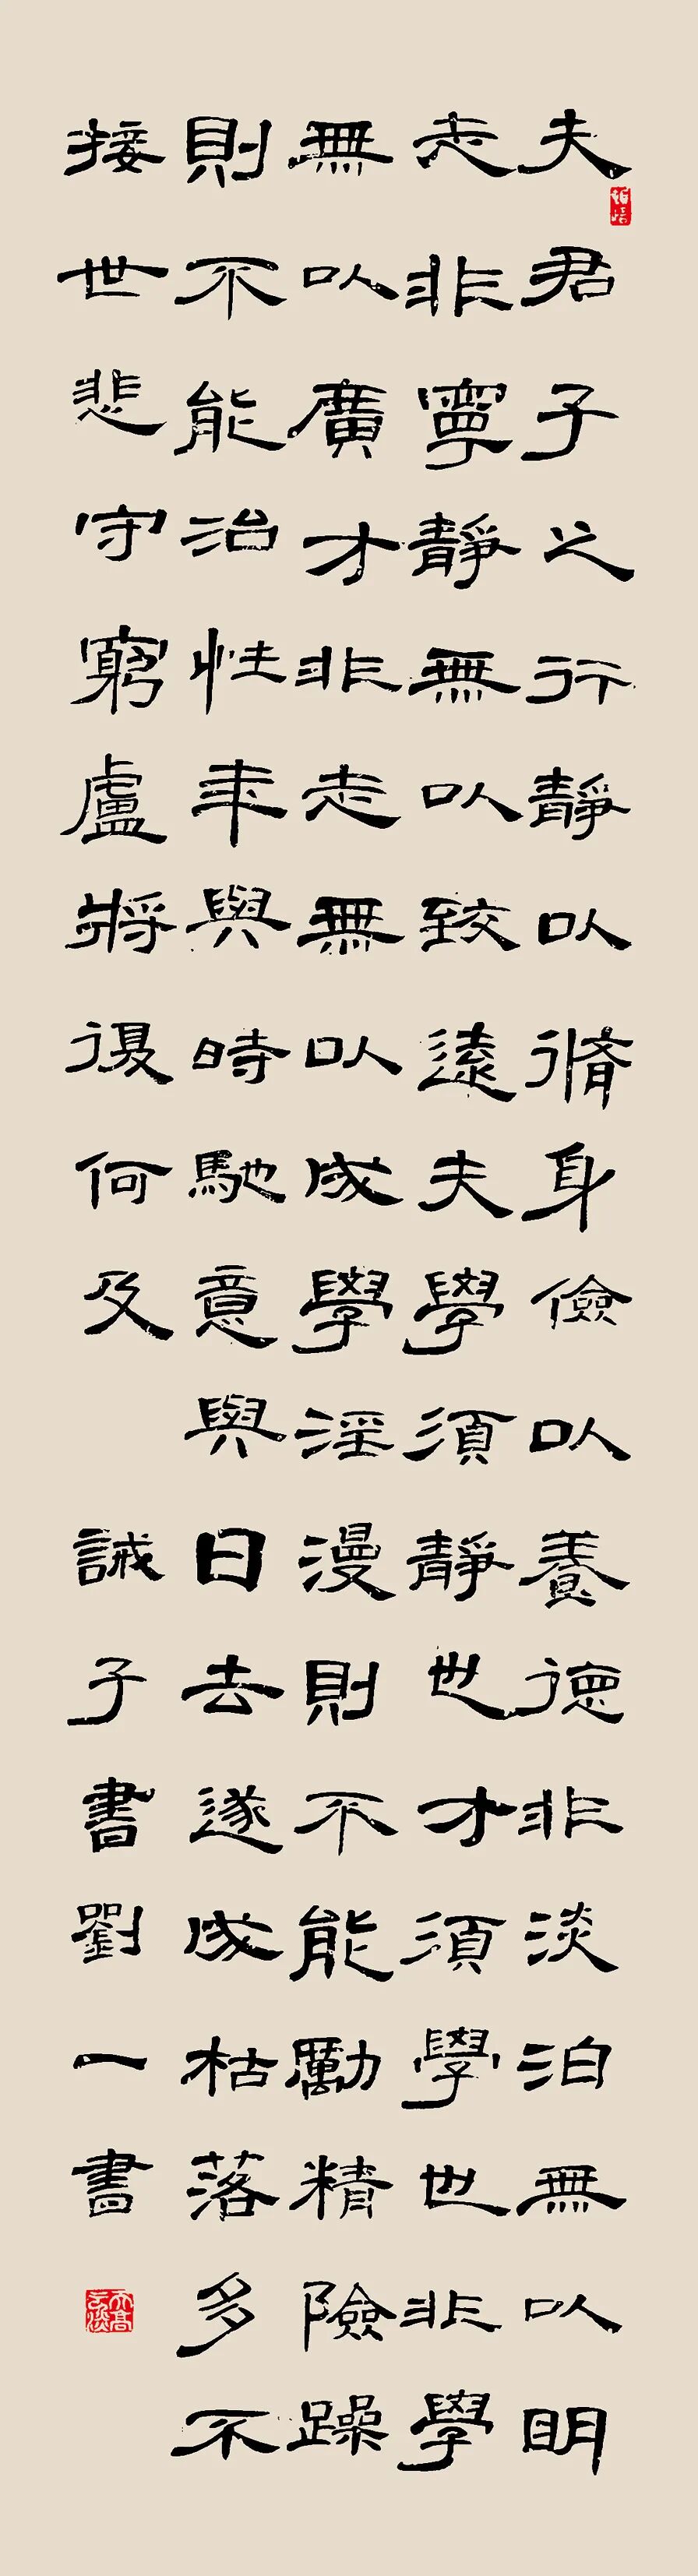 夫君子之行靜以脩身儉以養德非淡泊無以明
志非寧靜無以致遠夫學須靜也才須學也非學
無以廣才非志無以成學淫漫則不能勵精險躁
則不能治性年與時馳意與日去遂成枯落多不
接世悲守窮盧將復何及
誡子書劉一書